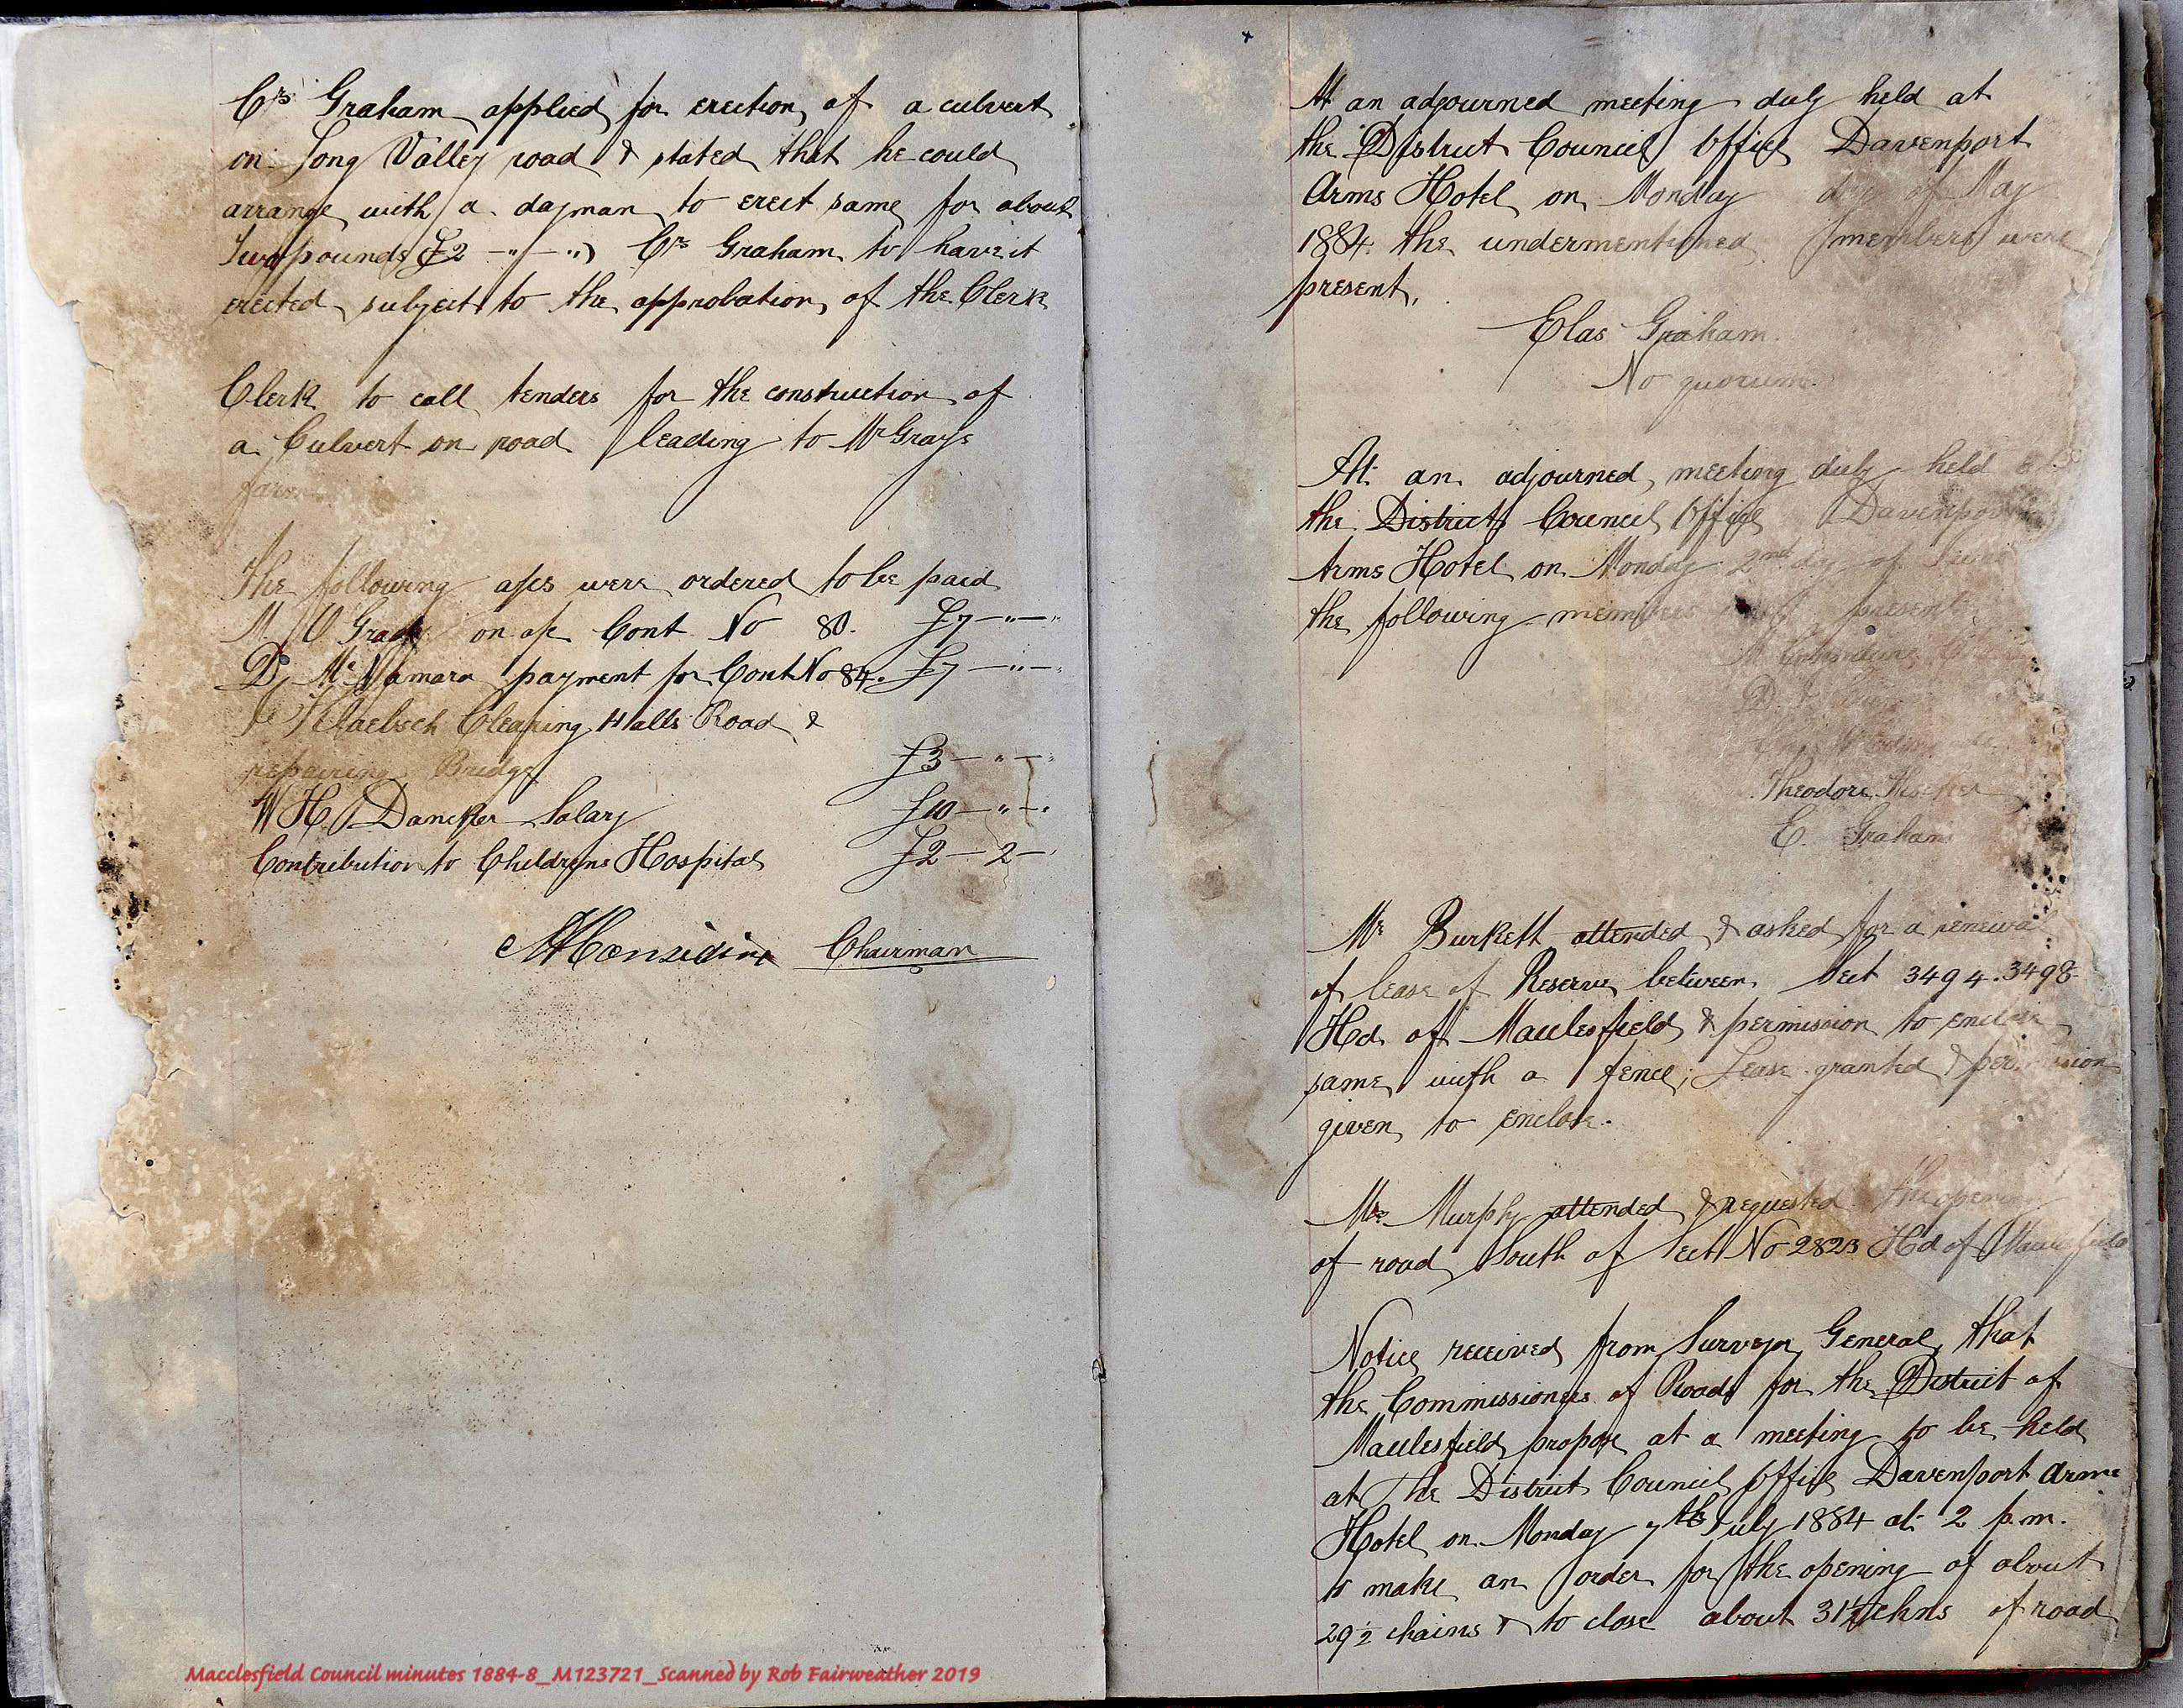 Crs Graham applied for erection of a culvert
on Long Valley road & stated that he could
arrange with a dayman to erect same for about
Two pounds (£2 -"-") Crs Graham to have it
erected subject to the approbation of the Clerk
Clerk to call tenders for the construction of
a Culvert on road leading to Mr Grays
farm
The following a/cs were ordered to be paid
M. O Grady on a/c Cont No 80. £7-"-"
D. McNamara payment for Cont No 84. £7-"-"
Clearing Halls Road &
repairing Bridge £3-"-"
W H Dancker Salary £10-"-"
Contribution to Childrens Hospital £2-2-"
M Considine Chairman
At an adjourned meeting duly held at
the District Council Office Davenport
Arms Hotel on Monday day of May
1884. the undermentioned members were
present,
Elas Graham.
No quorum.
At an adjourned meeting duly held
the District Council Office Davenport
Arms Hotel on Monday 2nd day of June
the following members present
M Considine
D.
Theodore
E. Graham
Mr Burkett attended & asked for a renewal
of lease of Reserve between Sect 3494.3498
Hd. of Macclesfield & permission to enclose
same with a fence; Lease granted & permission
given to enclose.
Mr Murphy attended & requested the opening
of road South of Sect No 2823 Hd of Macclesfield
Notice received from Surveyor General, that
the Commissioners of Roads for the District of
Macclesfield propose at a meeting to be held
at The District Council Office Davenport Arms
Hotel on Monday 7th July 1884 at 2 p.m.
to make an order for the opening of about
29½ chains & to close about 31½ chns of road
Macclesfield Council minutes 1884-8_M123721_Scanned by Rob Fairweather 2019